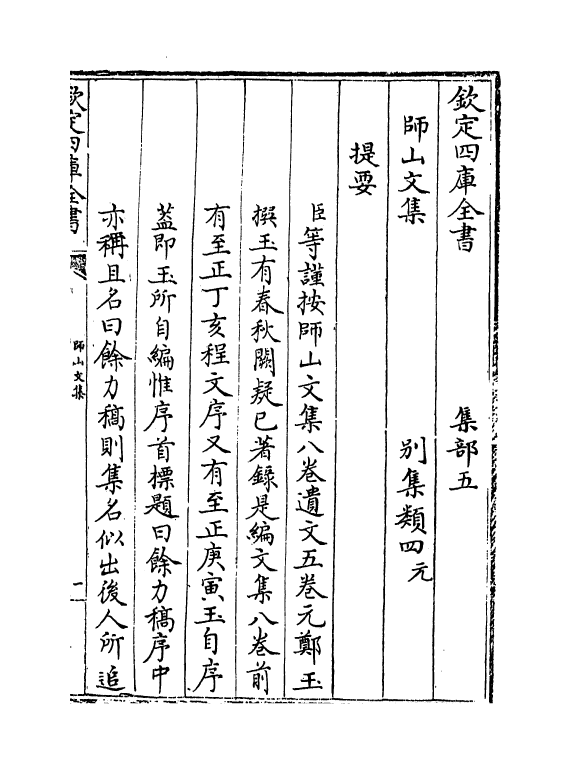 欽定四庫全書　集部五
師山文集　別集類四元
提要
臣等謹按師山文集八卷遺文五卷元鄭玉
撰玉有春秋闕疑已著錄是編文集八卷前
有至正丁亥程文序又有至正庚寅玉自序
葢即玉所自編惟序首標題曰餘力稿序中
亦稱且名曰餘力稿則集名似出後人所追
欽定四庫全書
師山文集